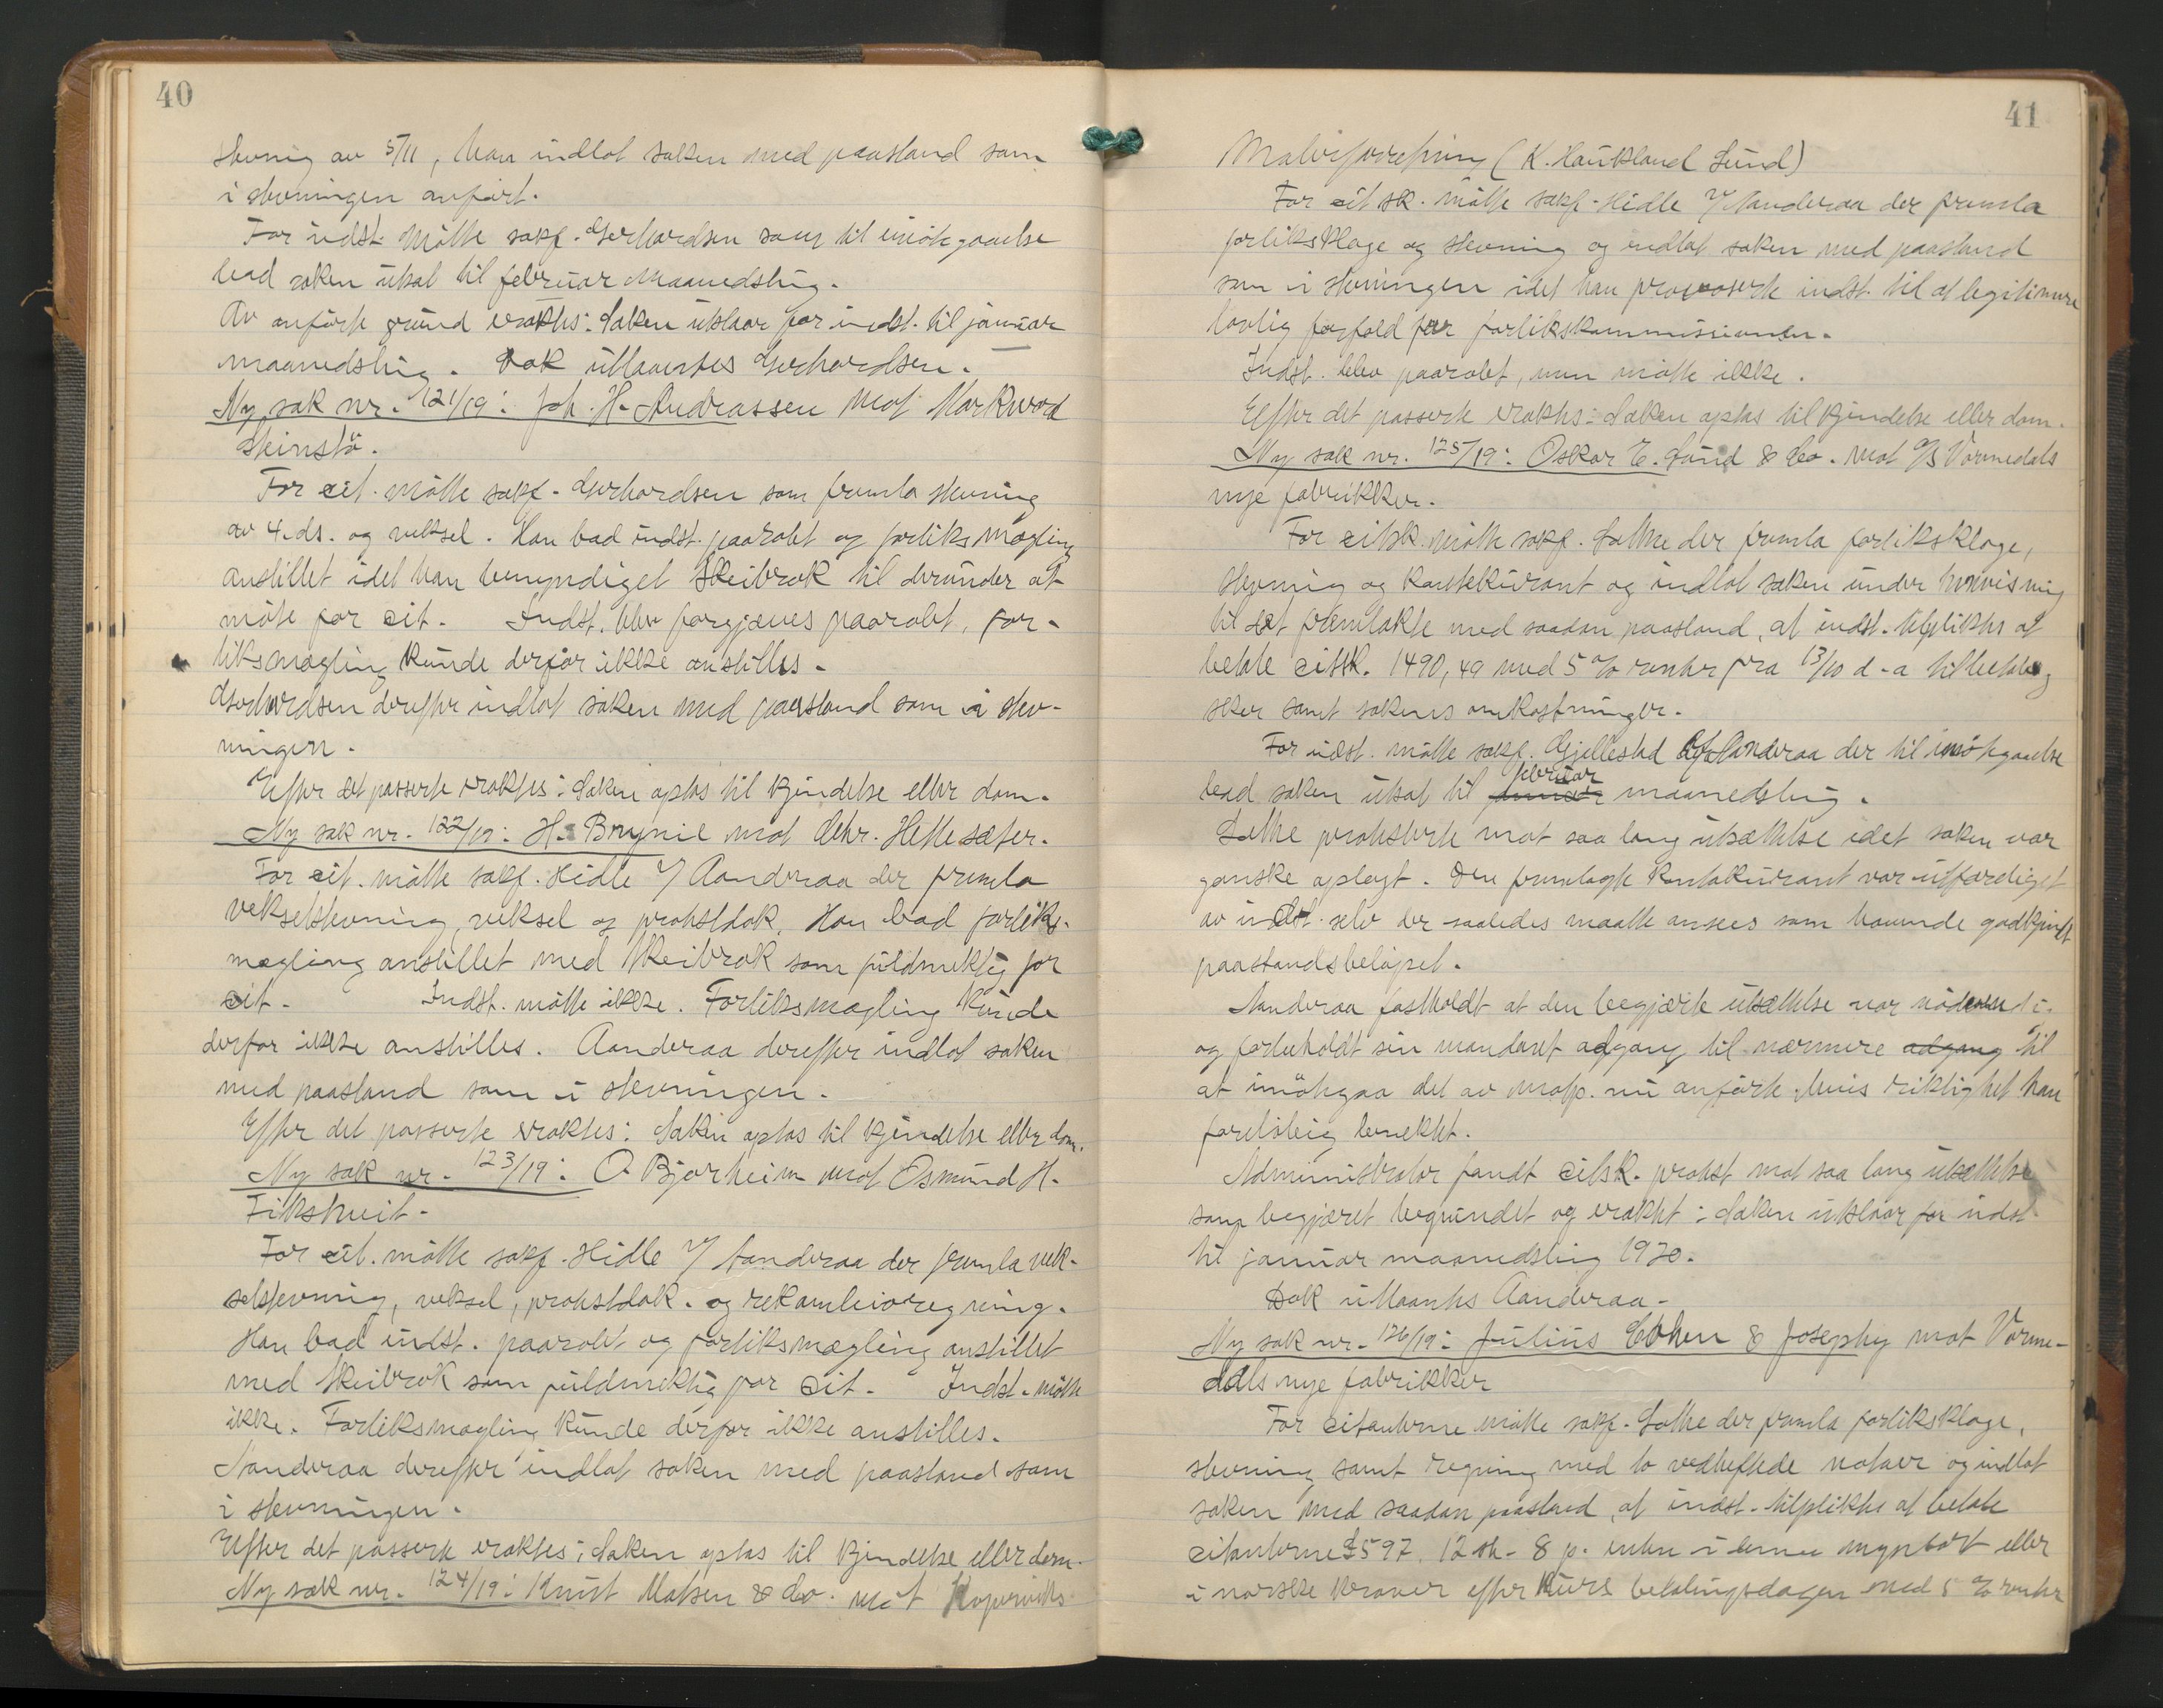 40
stevning av 5/11, han indlot saken med paastand som
i stevningen anført.
For indst. møtte sakf. Gerhardsen som til imøtegaaelse
bad saken utsat til februar maanedsting.
Av anførte grund eragtes: Saken utstaar for indst. til januar
maanedsting. Dok utlaantes Gerhardsen.
Ny sak nr. 121/19: Joh. H. Andreassen mot Markvard
Steinstø.
For cit. møtte sakf. Gerhardsen som fremla stevning
av 4. ds. og veksel. Han bad indst. paaropt og forliksmægling
anstillet idet han bemyndiget Skeibrok til derunder at
møte for cit. Indst. blev forgjæves paaropt, for-
liksmægling kunde derfor ikke anstilles.
Gerhardsen derefter indlot saken med paastand som i stev-
ningen.
Efter det passerte eragtes: Saken optas til kjendelse eller dom.
Ny sak nr. 122/19: H. Brynie mot Chr. Hettesæter.
For cit. møtte sakf. Hidle v/ Aanderaa der fremla
vekselstevning, veksel og protestdok. Han bad forliks-
mægling anstillet med Skeibrok som fuldmektig for
cit. Indst. møtte ikke. Forliksmægling kunde
derfor ikke anstilles. Aanderaa derefter indlot saken
med paastand som i stevningen.
Efter det passerte eragtes: Saken optas til kjendelse eller dom.
Ny sak nr. 123/19: O Bjorheim mot Osmund H.
Fikstveit.
For cit. møtte sakf. Hidle v/ Aanderaa der fremla vek-
selstevning, veksel, protestdok. og rekambioregning.
Han bad indst. paaropt og forliksmægling anstillet
med Skeibrok som fuldmektig for cit. Indst. møtte
ikke. Forliksmægling kunde derfor ikke anstilles.
Aanderaa derefter indlot saken med paastand som
i stevningen.
Efter det passerte eragtes: Saken optas til kjendelse eller dom.
Ny sak nr. 124/19: Knut Matsen & Co. mot Koperviks
41
Malerforretning (K. Haukland Lund)
For citsk. møtte sakf. Hidle v/ Aanderaa der fremla
forliksklage og stevning og indlot saken med paastand
som i stevningen idet han provoserte indst. til at legitimere
lovlig forfald for forlikskommissionen.
Indst. blev paaropt, men møtte ikke.
Efter det passerte eragtes: Saken optas til kjendelse eller dom.
Ny sak nr. 125/19: Oskar E. Lund & Co. mot A/S Vormedals
nye fabrikker.
For citsk. møtte sakf. Lothe der fremla forliksklage,
stevning og kontokurant og indlot saken under henvisning
til det fremlakte med saadan paastand, at indst. tilpliktes at
betale citsk. 1490,49 med 5% renter fra 13/10 d.a til betaling
sker samt sakens omkostninger.
For indst. møtte sakf. Gjellestad v/ Aanderaa der til imøtegaaelse
bad saken utsat til januar februar maanedsting.
Lothe protesterte mot saa lang utsættelse idet saken var
ganske oplagt. Den fremlagte kontokurant var utfærdiget
av indst. selv der saaledes maatte ansees som havende godkjendt
paastandsbeløpet.
Aanderaa fastholdt at den begjærte utsættelse var nødvendi-
og forbeholdt sin mandant adgang til nærmere adgang til
at imøtegaa det av motp. nu anførte hvis riktighet han
foreløbig benektet.
Administrator fandt citsk. protest mot saa lang utsættelse
som begjæret begrundet og eragtet: Saken utstaar for indst.
til januar maanedsting 1920.
Dok utlaantes Aanderaa.
Ny sak nr. 126/19: Julius Cohen & Josephy mot Vorme-
dals nye fabrikker
For citanterne møtte sakf. Lothe der fremla forliksklage,
stevning samt regning med to vedheftede notaer og indlot
saken med saadan paastand, at indst. tilpliktes at betale
citanterne £597. 12 sh. 8 p. enten i denne myntsort eller
i norske kroner efter kurs betalingsdagen med 5% renter